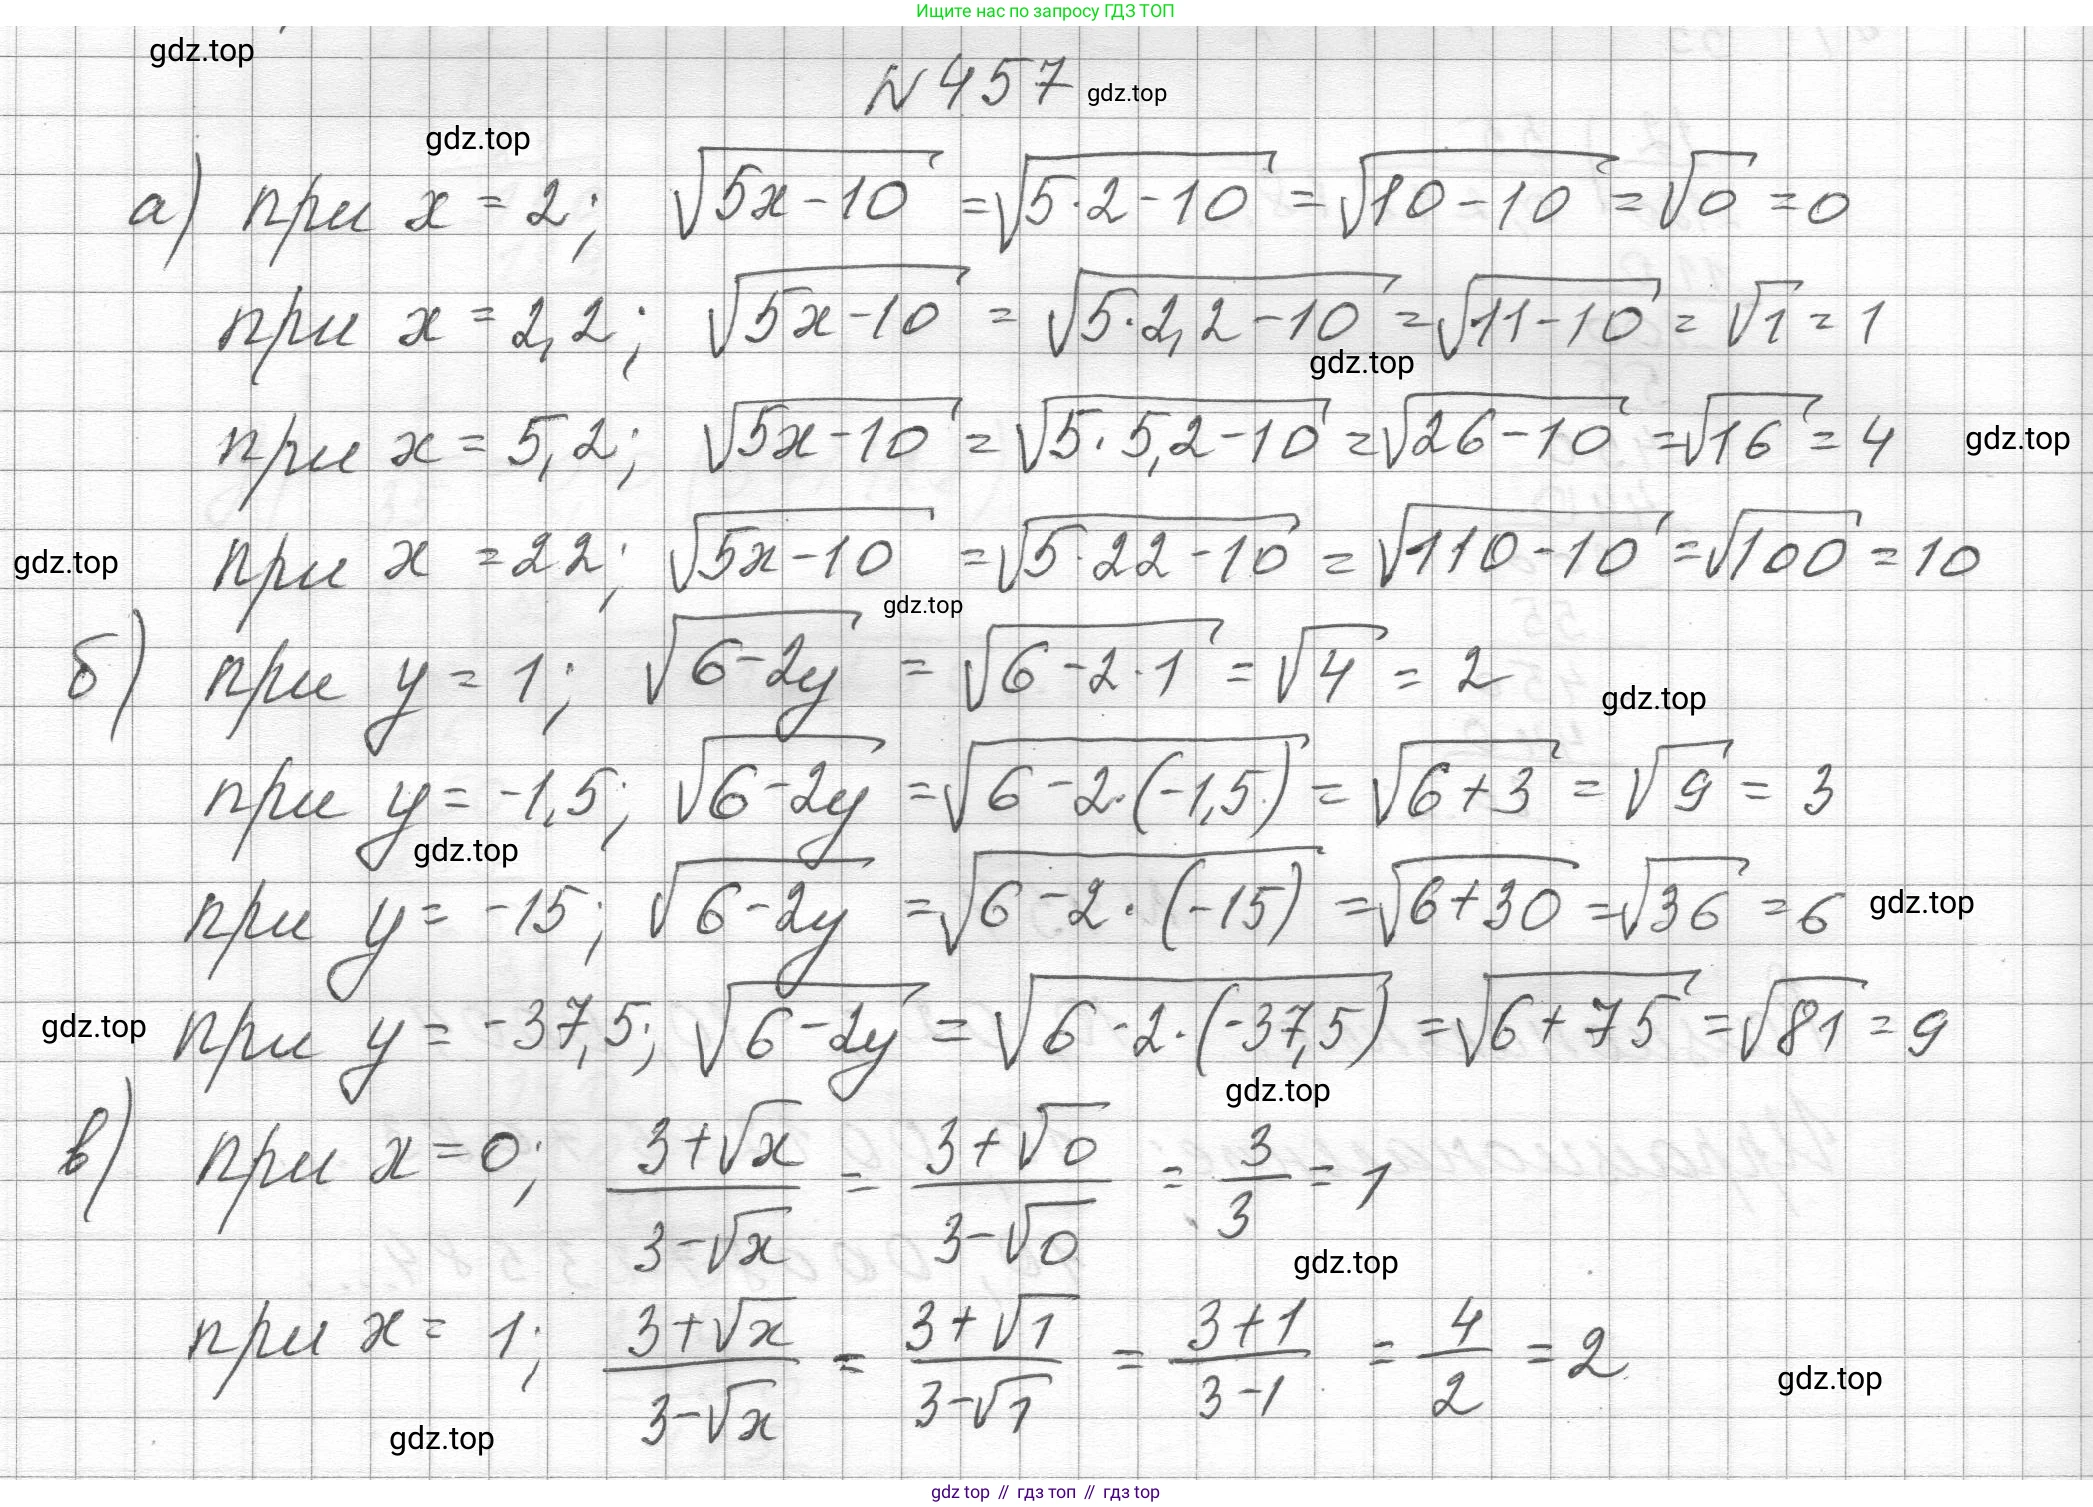 Ищите нас по запросу ГДЗ ТОП
gdz.top
N 457 gdz.top
gdz.top
а) при x = 2; √(5x-10) = √(5·2-10) = √(10-10) = √0 = 0
при x = 2,2; √(5x-10) = √(5·2,2-10) = √(11-10) = √1 = 1
gdz.top
при x = 5,2; √(5x-10) = √(5·5,2-10) = √(26-10) = √16 = 4 gdz.top
gdz.top при x = 22; √(5x-10) = √(5·22-10) = √(110-10) = √100 = 10
gdz.top
б) при y = 1; √(6-2y) = √(6-2·1) = √4 = 2
gdz.top
при y = -1,5; √(6-2y) = √(6-2·(-1,5)) = √(6+3) = √9 = 3
gdz.top
при y = -15; √(6-2y) = √(6-2·(-15)) = √(6+30) = √36 = 6 gdz.top
gdz.top при y = -37,5; √(6-2y) = √(6-2·(-37,5)) = √(6+75) = √81 = 9
gdz.top
в) при x = 0; (3+√x)/(3-√x) = (3+√0)/(3-√0) = 3/3 = 1
gdz.top
при x = 1; (3+√x)/(3-√x) = (3+√1)/(3-√1) = (3+1)/(3-1) = 4/2 = 2
gdz.top
gdz.top
gdz top // гдз топ // гдз top